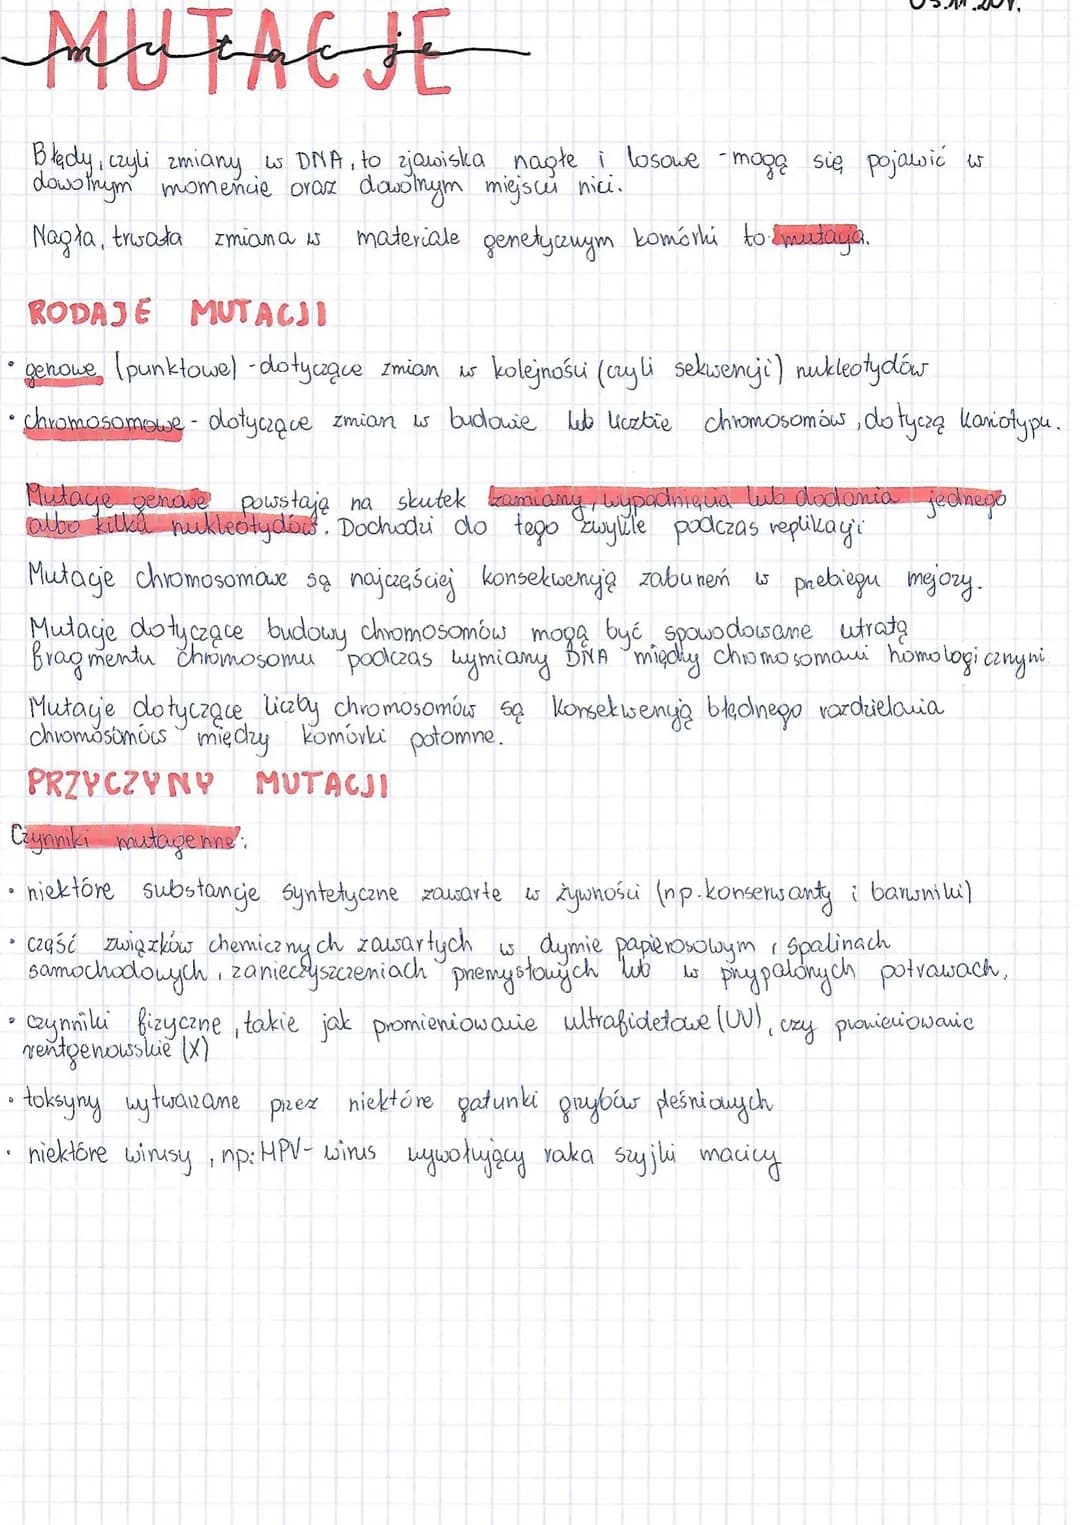 MUTACJE
mutacje
Błędy, czyli zmiany w DNA, to zjawiska nagłe i losowe - mogą się pojawić w
dowolnym momencie oraz dowolnym miejscu nici.
Nagła, trwała zmiana w materiale genetycznym komórki to mutacja.
RODAJE MUTACJI
• genowe (punktowe) - dotyczące zmian w kolejności (czyli sekwencji) nukleotydów
• chromosomowe - dotyczące zmian w budowie lub liczbie chromosomów, dotyczą kariotypu.
Mutacje genowe powstają na skutek zamiany, wypadnięcia lub dodania jednego
albo kilku nukleotydów. Dochodzi do tego zwykle podczas replikacji
Mutacje chromosomowe są najczęściej konsekwencją zaburzeń w przebiegu mejozy.
Mutacje dotyczące budowy chromosomów mogą być spowodowane utratą
fragmentu chromosomu podczas wymiany DNA między chromosomami homologicznymi.
Mutacje dotyczące liczby chromosomów są konsekwencją błędnego rozdzielania
chromosomów między komórki potomne.
PRZYCZYNY MUTACJI
Czynniki mutagenne:
• niektóre substancje syntetyczne zawarte w żywności (np. konserwanty i barwniki)
• część związków chemicznych zawartych w dymie papierosowym, spalinach
samochodowych, zanieczyszczeniach przemysłowych lub w przypalonych potrawach.
• czynniki fizyczne, takie jak promieniowanie ultrafioletowe (UV), czy promieniowanie
rentgenowskie (X)
• toksyny wytwarzane przez niektóre gatunki grzybów pleśniowych
• niektóre wirusy, np: HPV - wirus wywołujący raka szyjki macicy